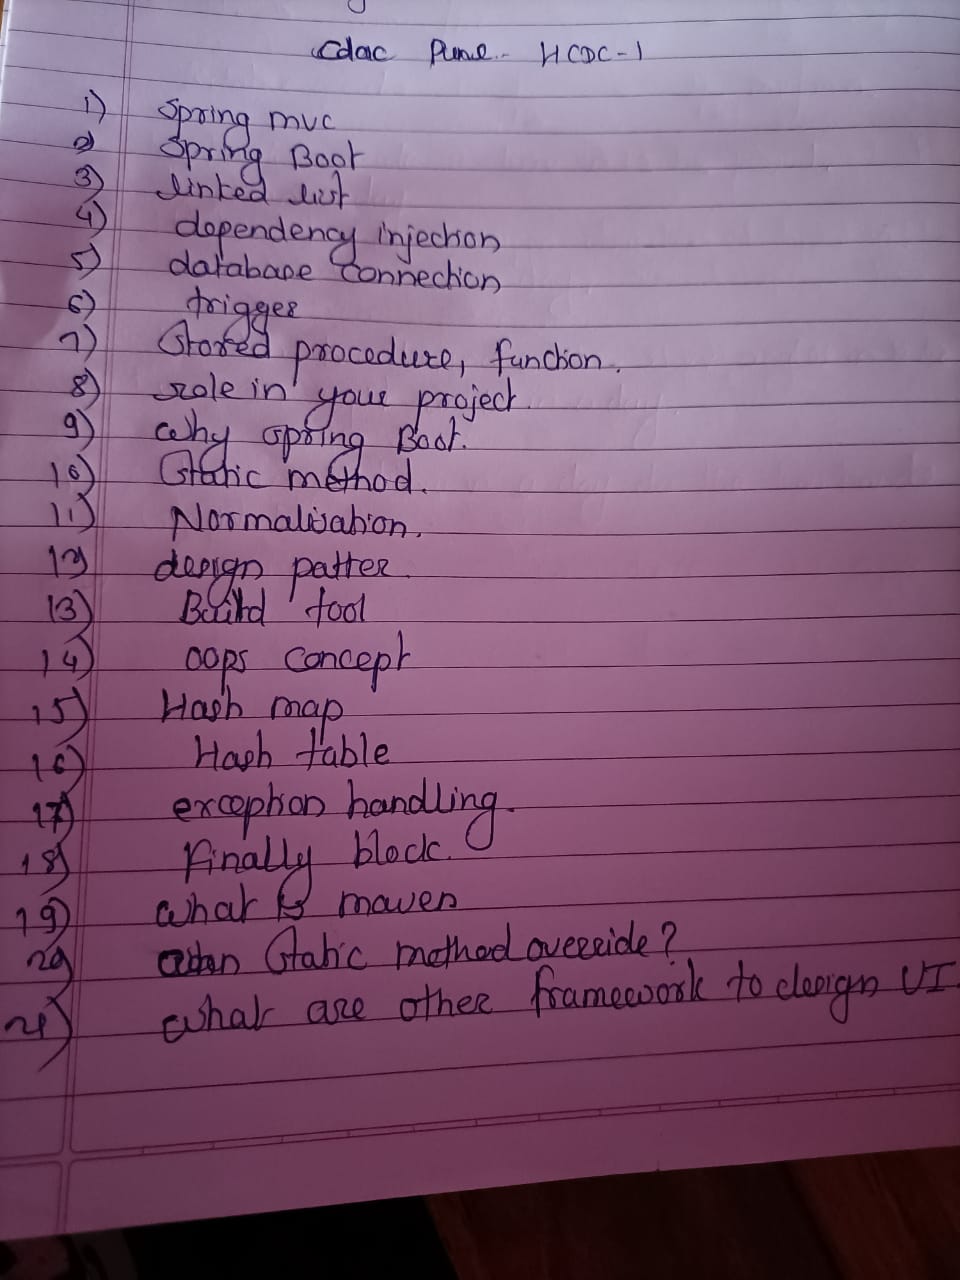 Cdac Pune - HCDC-1
1) Spring mvc
2) Spring Boot
3) linked list
4) dependency injection
5) database connection
6) trigger
7) Stored procedure, function.
8) role in your project.
9) Why spring Boot.
10) Static method.
11) Normalisation.
12) design patter
13) Build tool
14) OOPS concept
15) Hash map
16) Hash table
17) exception handling.
18) Finally block.
19) what is maven
20) Static method override?
21) what are other framework to design UI.